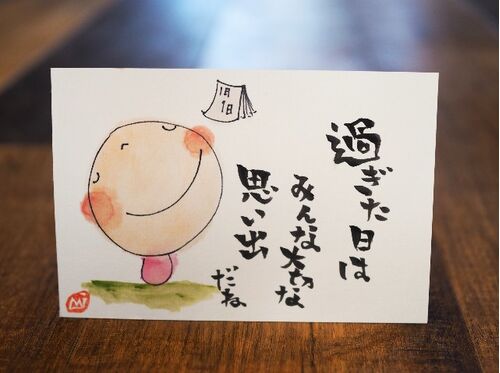 過ぎた日は
みんな大切な
思い出
だね
1月
1日